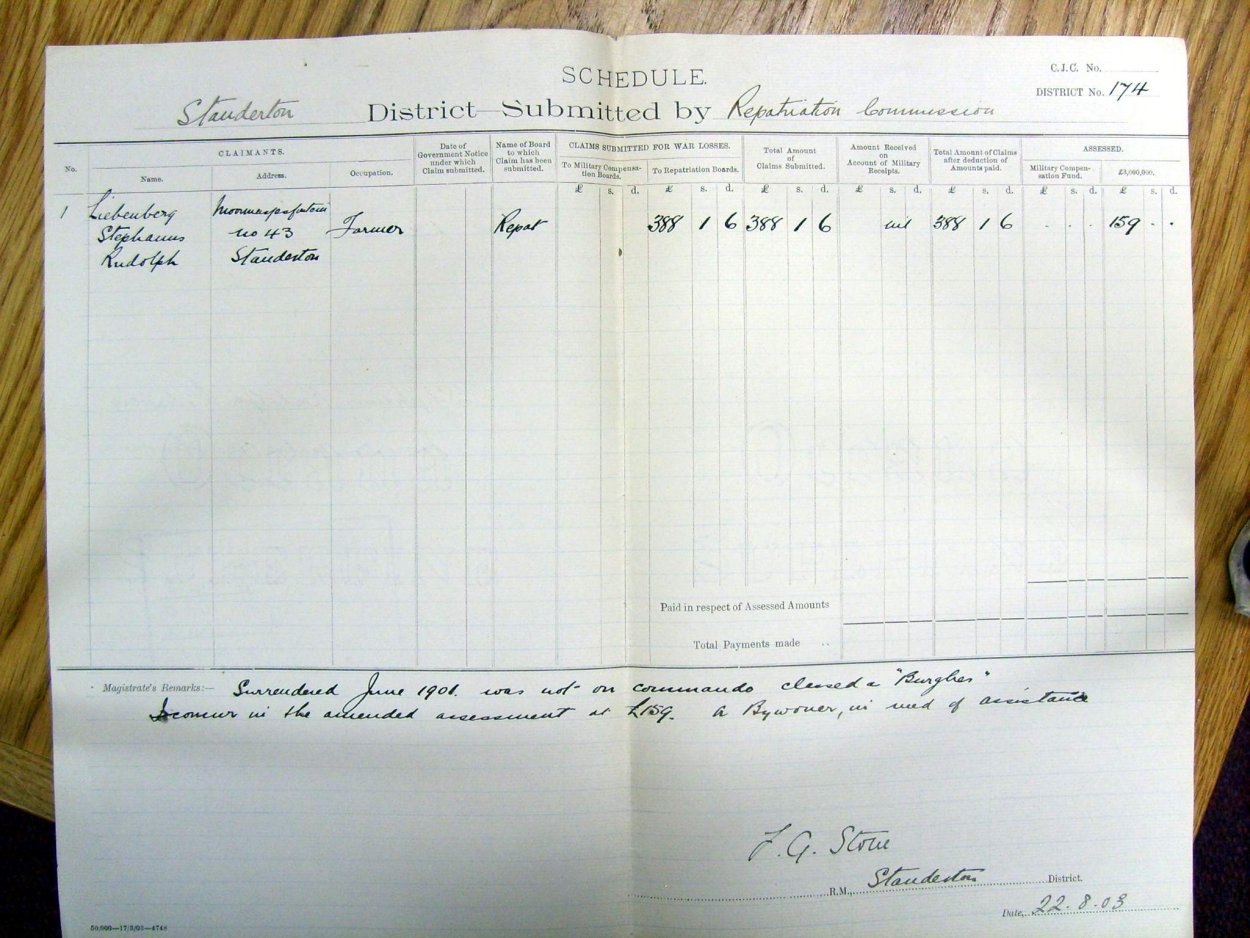 SCHEDULE.
C.J.C. No.
DISTRICT No. 174
Standerton District Submitted by Repatriation Commission
No.
CLAIMANTS.
Name.
Address.
Occupation.
Date of Government Notice under which Claim submitted.
Name of Board to which Claim has been submitted.
CLAIMS SUBMITTED FOR WAR LOSSES.
To Military Compensation Boards.
To Repatriation Boards.
Total Amount of Claims Submitted.
Amount Received on Account of Military Receipts.
Total Amount of Claims after deduction of Amounts paid.
ASSESSED.
Military Compensation Fund.
£3,000,000.
£ s. d. £ s. d. £ s. d. £ s. d. £ s. d. £ s. d. £ s. d.
1 Liebenberg
Stephanus no 43 Farmer Repat 388 1 6 388 1 6 nil 388 1 6 . . . 159 . .
Rudolph Standerton
Paid in respect of Assessed Amounts
Total Payments made ..
Magistrate's Remarks:— Surrendered June 1901. was not on commando classed a "Burgher"
I concur in the amended assessment at £159. A Bywoner, in need of assistance
F. G. Stone
R.M., Standerton District.
Date, 22.8.03
50,000—17/3/03—4748